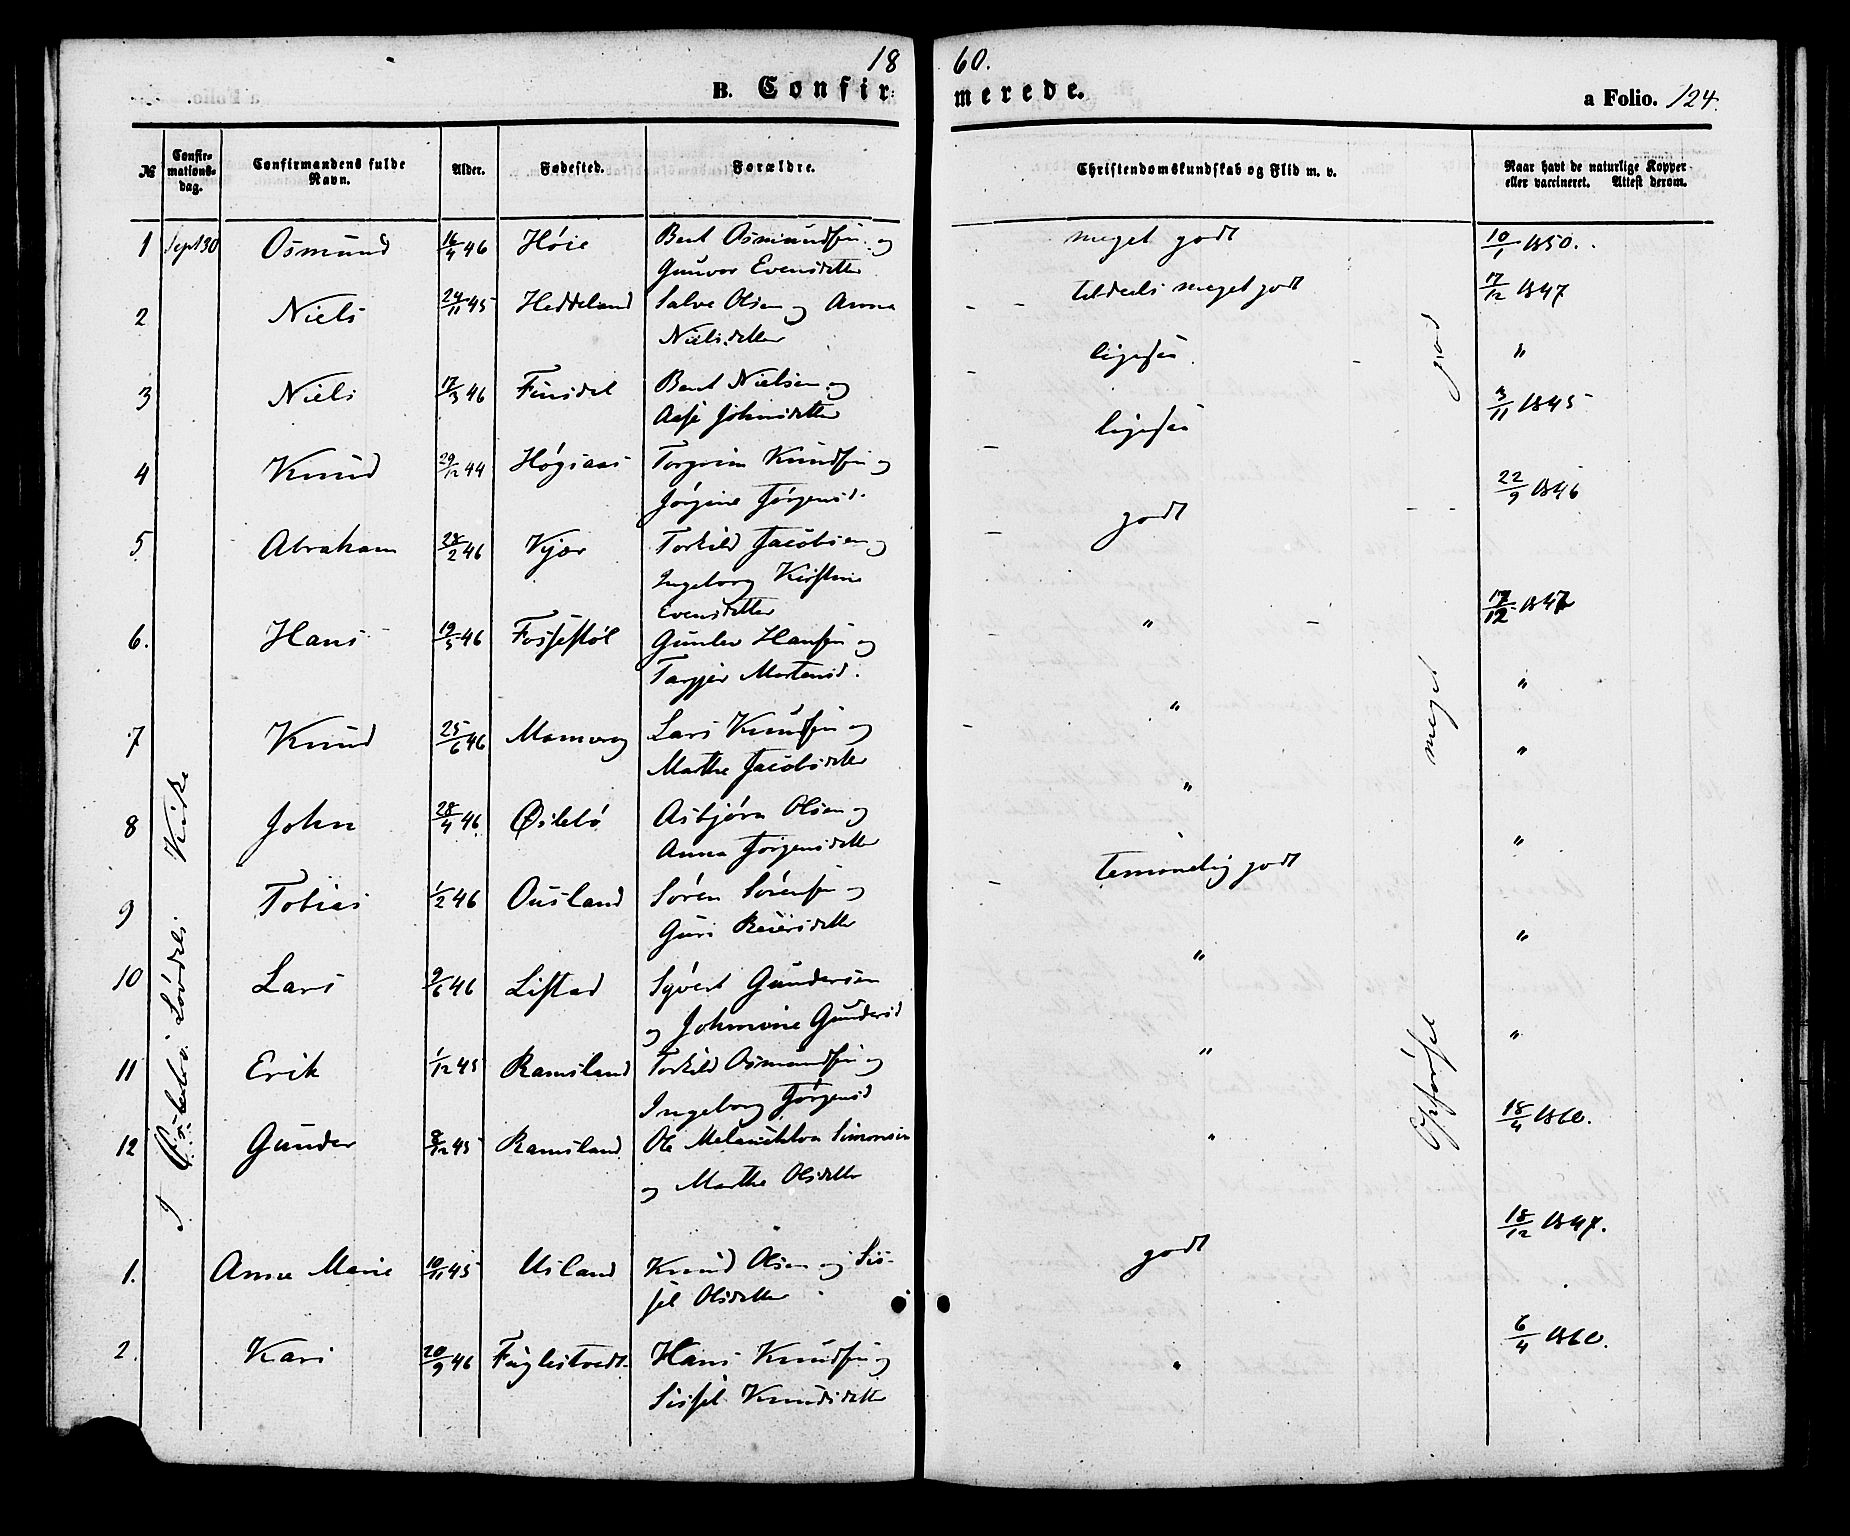 1860.
B. Confirmerede.
a Folio. 124.
№
Confirmationsdag.
Confirmandens fulde Navn.
Alder.
Fødested.
Forældre.
Christendomskundskab og Flid m. v.
Naar havt de naturlige Kopper eller vaccineret. Attest derom.
1 Sept 30 Osmund 16/4 46 Höie Bent Osmundsen og meget godt 10/1 1850.
Gunvor Evensdatter
2 Niels 24/11 45 Heddeland Salve Olsen og Anna tildeels meget godt 17/12 1847
Nielsdatter
3 Niels 17/3 46 Finsdal Bent Nielsen og ligesaa "
Aase Johnsdatter
4 Knud 29/12 44 Högsaas Torgrim Knudsen og ligesaa 3/11 1845
Jörgine Jörgensd.
5 Abraham 28/2 46 Kjær Torkild Jacobsen og godt 22/9 1846
Ingeborg Kirstine
Evensdatter
6. Hans 19/5 46 Fossestöl Gunlev Hansen og " 17/12 1847
Targjer Mortensd.
7 Knud 25/6 46 Lars Knudsen og " "
Marthe Jacobsdatter
8 John 28/4 46 Öslebö Asbjörn Olsen og " "
Anna Jörgensdatter
9 Tobias 1/2 46 Ousland Sören Sörensen og temmelig godt "
Guri Reiersdatter
10 Lars 9/6 46 Listad Syvert Gundersen " "
og Johnine Gundersd
11 Erik 1/12 45 Ramsland Torkild Osmundsen og " "
Ingeborg Jörgensd
12 Gunder 8/12 45 Ramsland Ole Melanchton Simonsen " 18/4 1860.
og Marthe Olsdatter
1. Anne Marie 10/11 45 Usland Knud Olsen og Sis- godt 18/12 1847.
sel Olsdatter
2. Kari 20/9 46 Fuglestvedt Hans Knudsen og " 6/4 1860.
Sissel Knudsdatter
I Öslebö Kirke
meget god
Opförsel